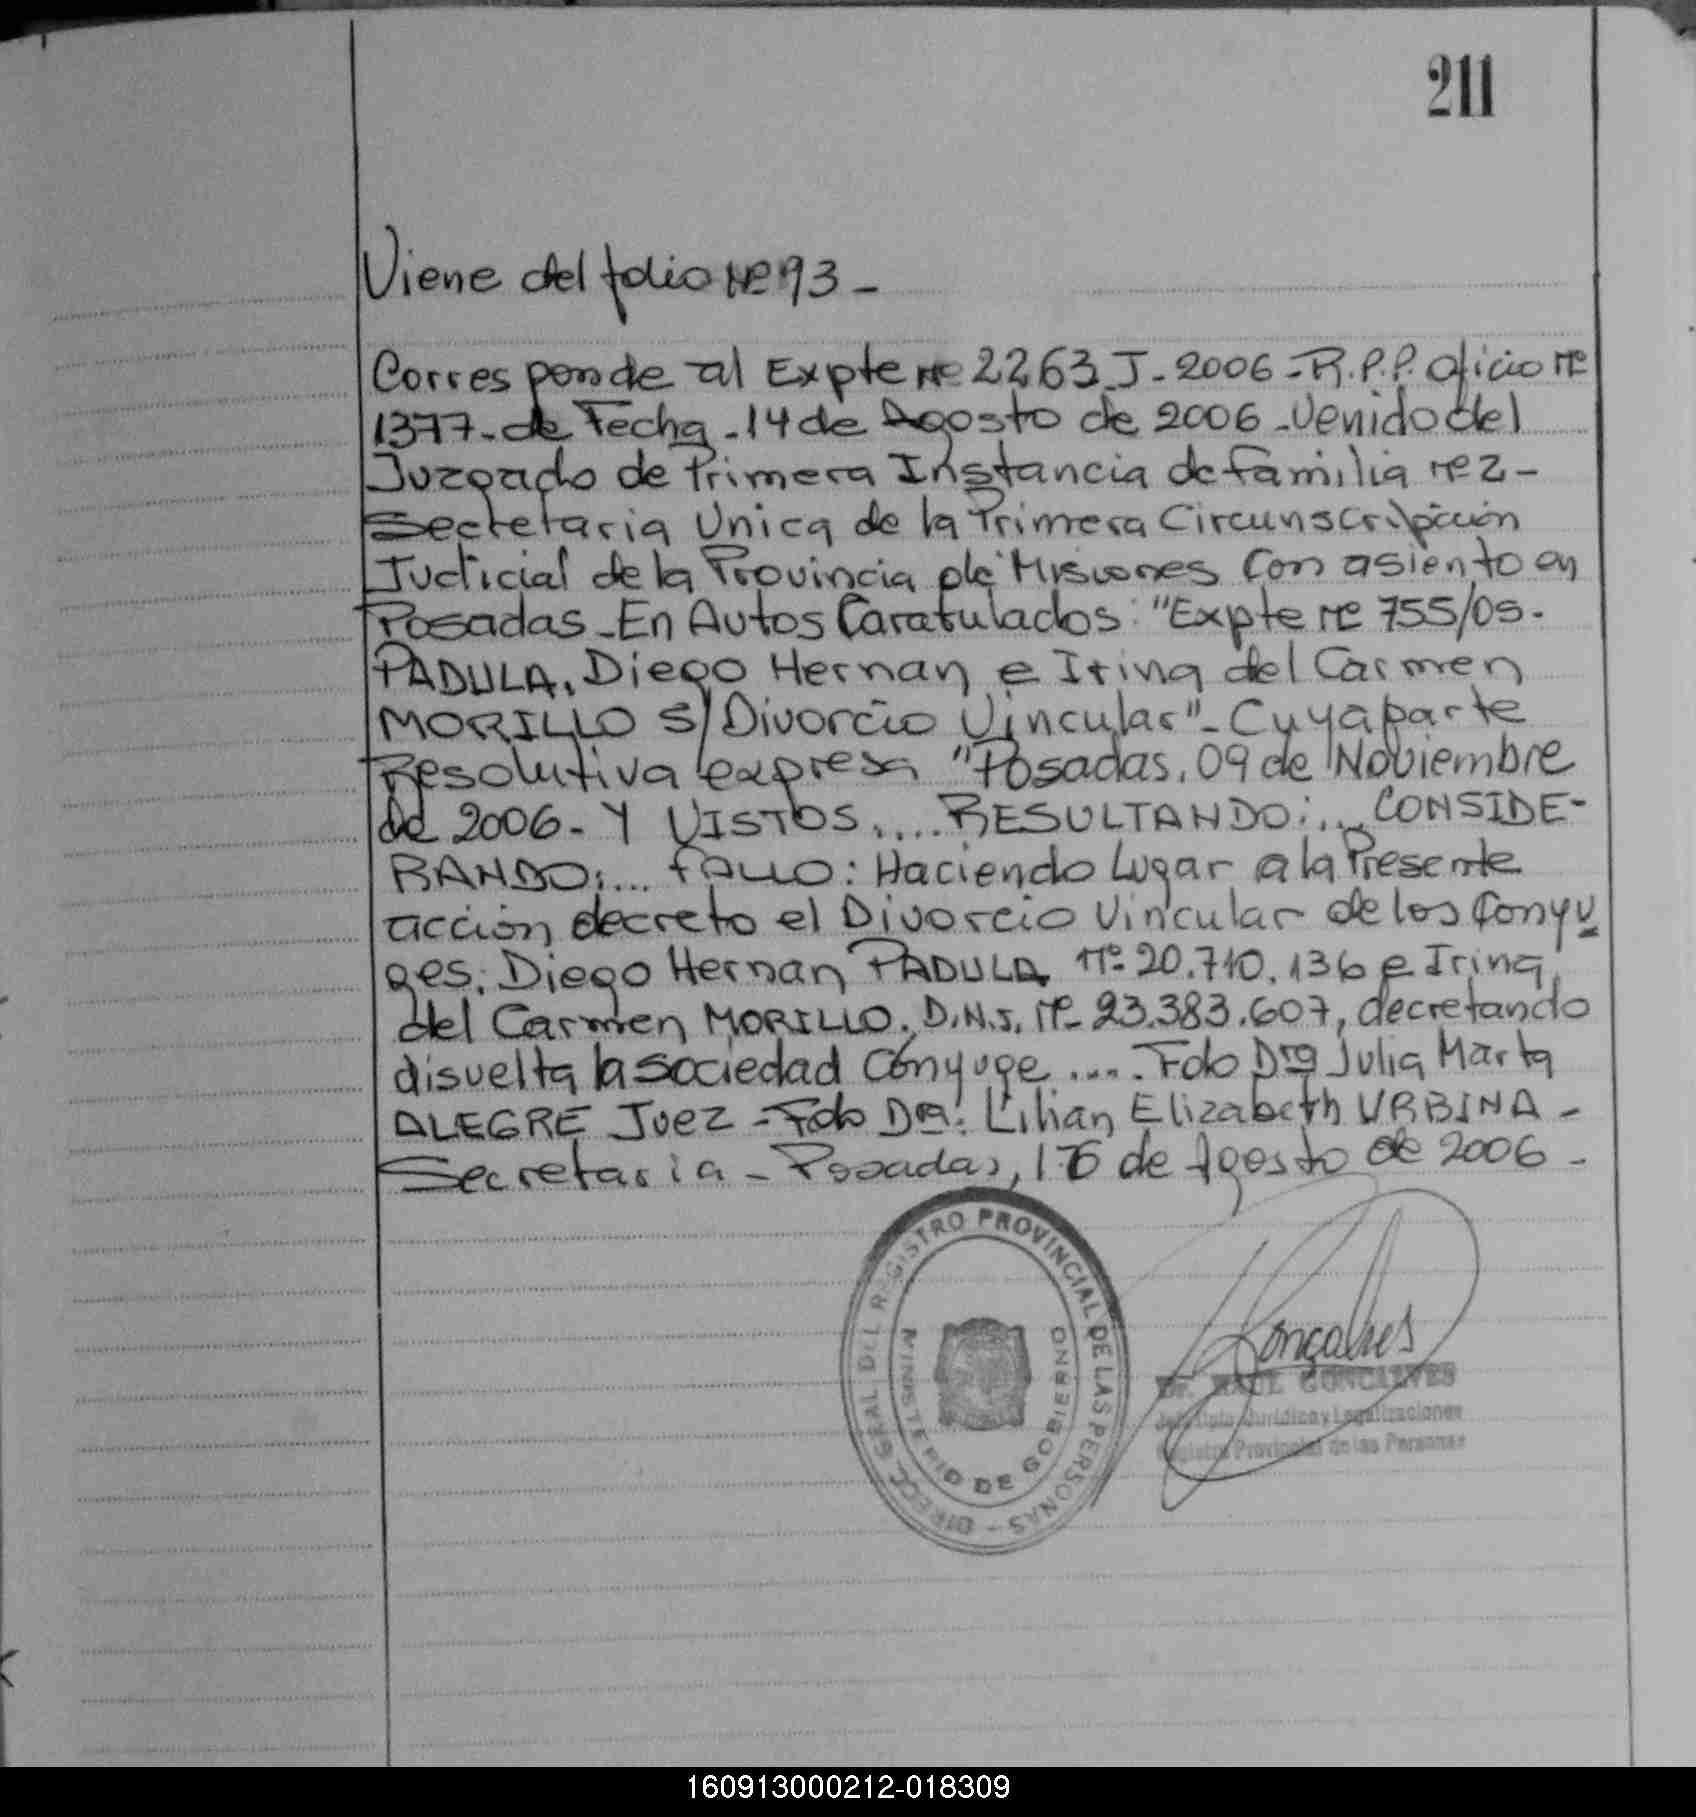 211
Viene del folio Nº 93 -
Corresponde al Expte Nº 2263 J - 2006 - R.P.P. Oficio Nº
1377 - de Fecha - 14 de Agosto de 2006 - Venido del
Juzgado de Primera Instancia de Familia Nº 2 -
Secretaria Unica de la Primera Circunscripción
Judicial de la Provincia de Misiones con asiento en
Posadas - En Autos Caratulados: "Expte Nº 755/05 -
PADULA, Diego Hernan e Irina del Carmen
MORILLO S/ Divorcio Vincular" - Cuya parte
Resolutiva expresa "Posadas, 09 de Noviembre
de 2006 - Y VISTOS.... RESULTANDO:... CONSIDE-
RANDO:... FALLO: Haciendo Lugar a la Presente
acción decreto el Divorcio Vincular de los Conyu
ges: Diego Hernan PADULA Nº 20.710.136 e Irina
del Carmen MORILLO. D.N.I. Nº 23.383.607, decretando
disuelta la sociedad Cónyuge .... Fdo Dra Julia Marta
ALEGRE Juez - Fdo Dra: Lilian Elizabeth URBINA -
Secretaria - Posadas, 16 de Agosto de 2006 -
DIRECC. GRAL DEL REGISTRO PROVINCIAL DE LAS PERSONAS -
MINISTERIO DE GOBIERNO
Gonçalves
Dr. RAUL GONCALVES
Jefe Dpto. Jurídico y Legalizaciones
Registro Provincial de las Personas
160913000212-018309